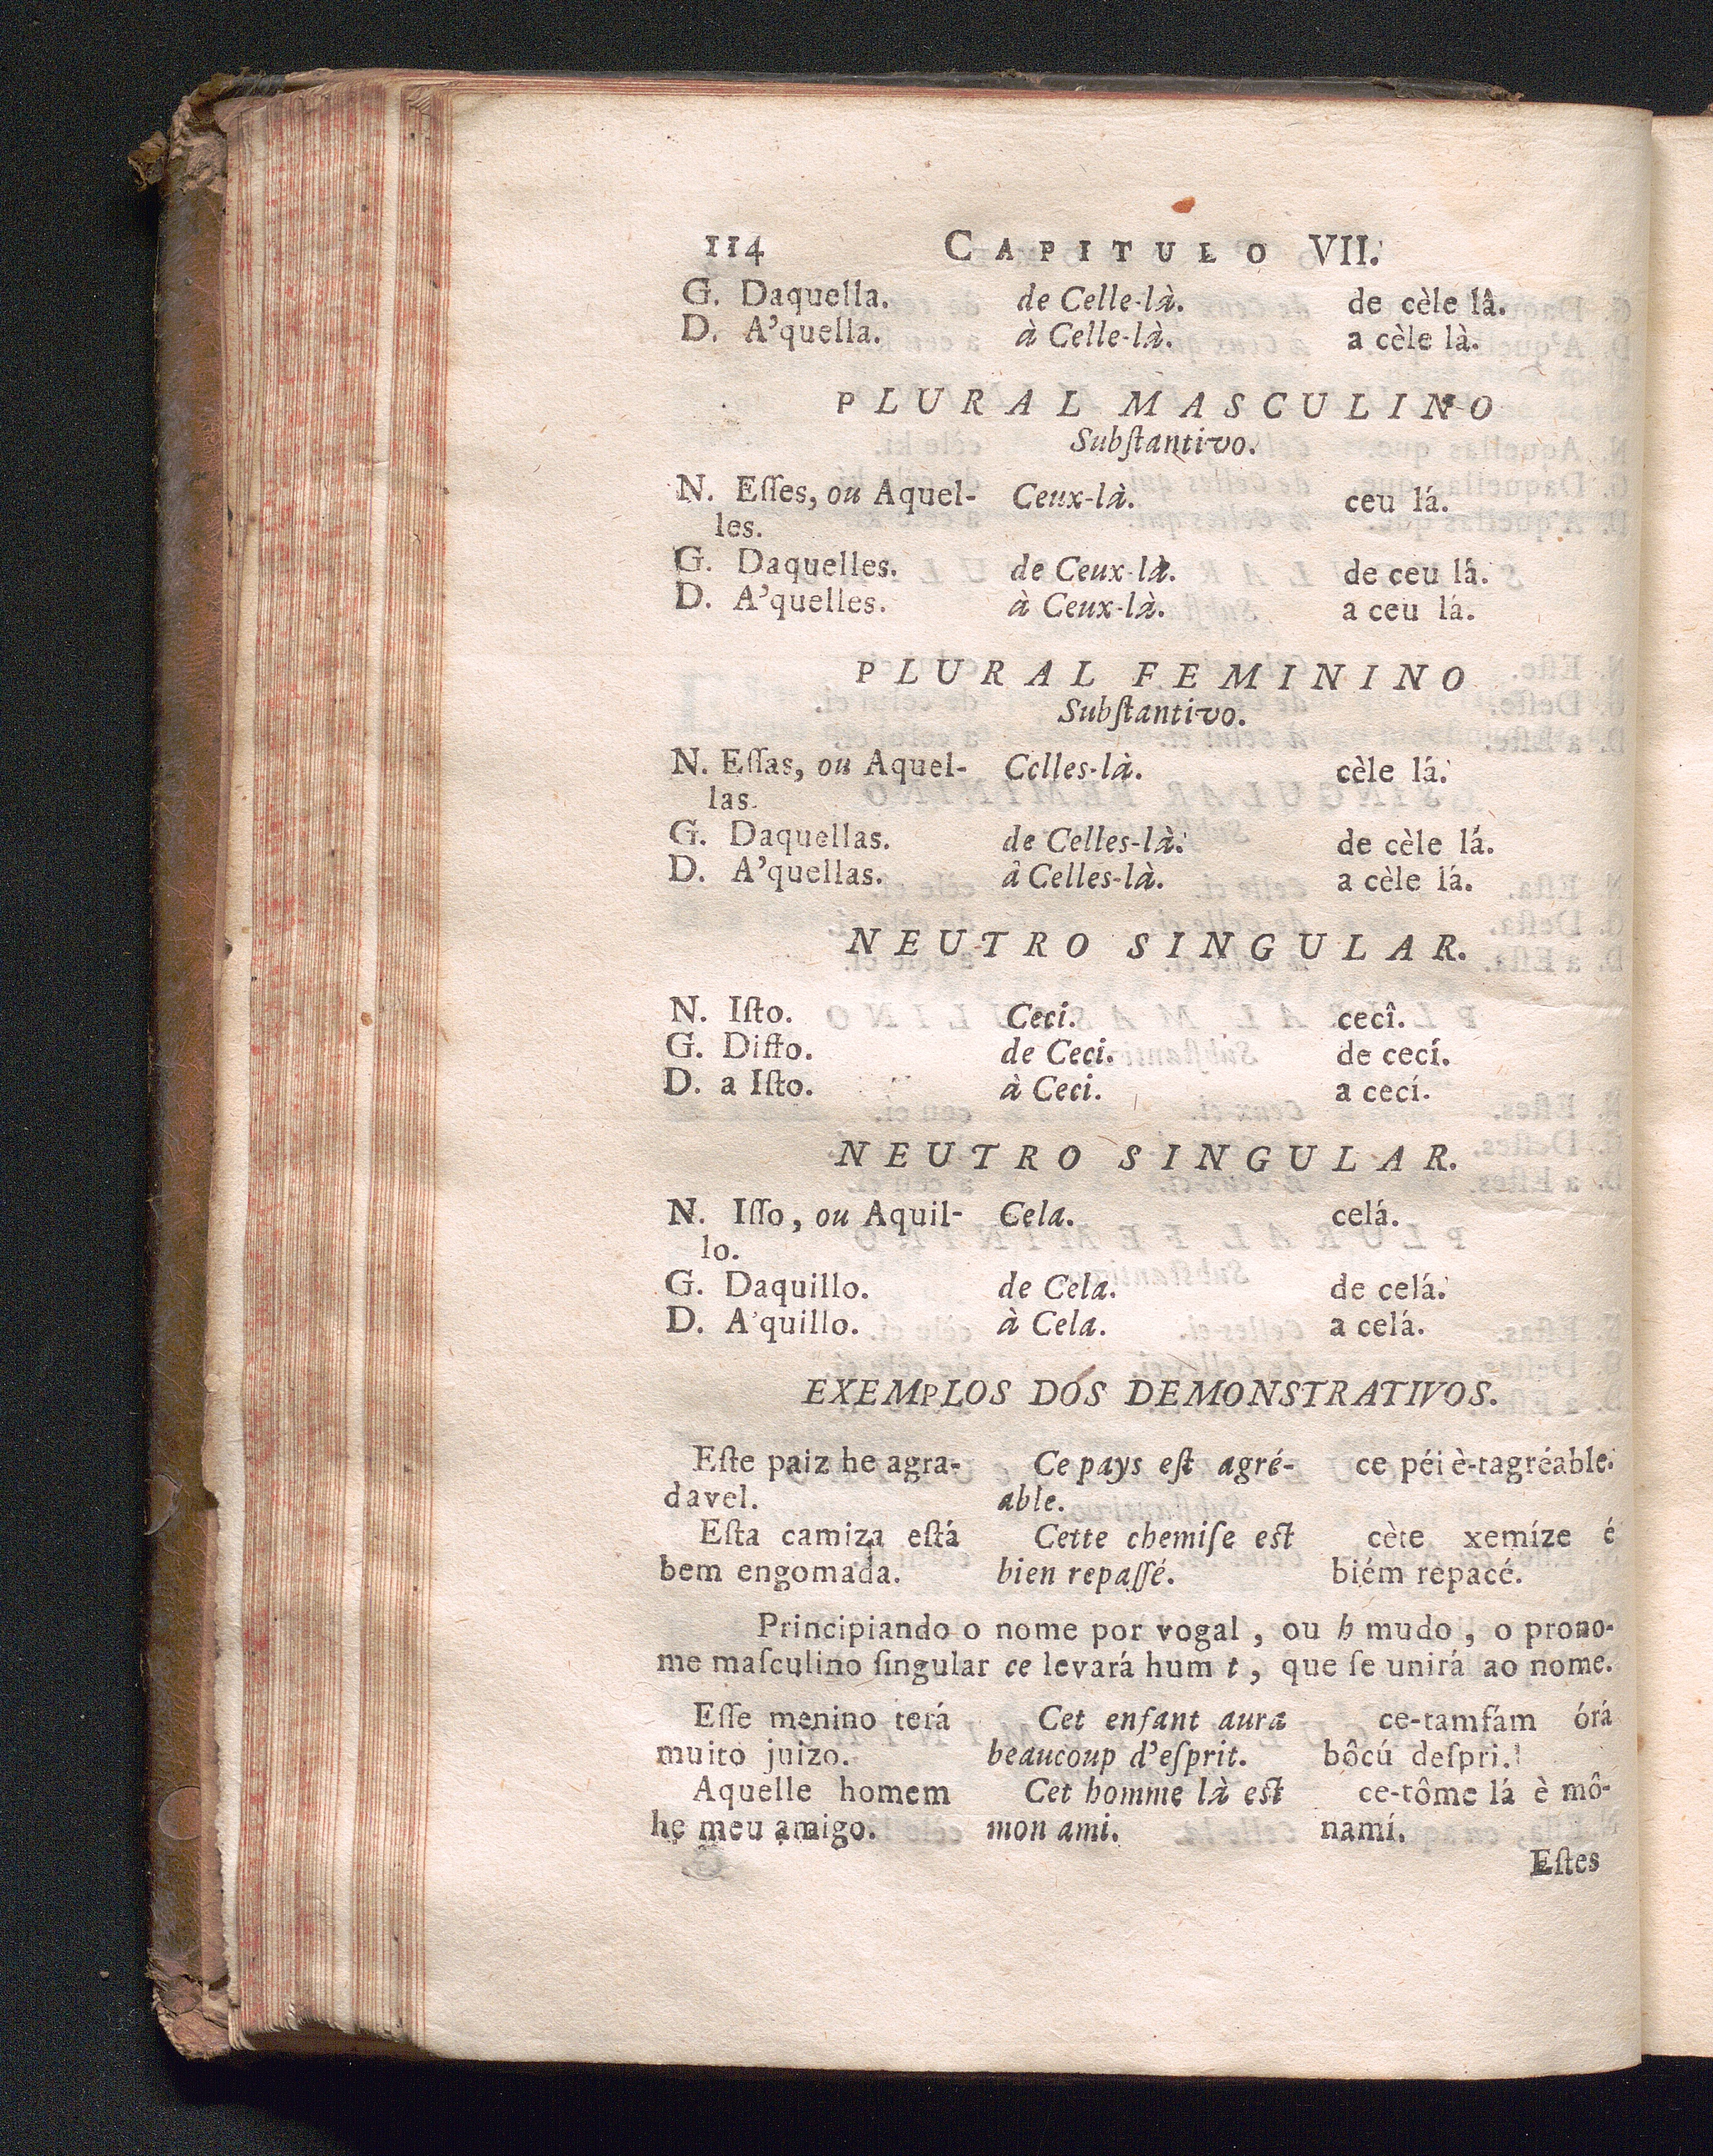 114 CAPITULO VII.
G. Daquella. de Celle-là. de cèle lâ.
D. A'quella. à Celle-là. a cèle là.
PLURAL MASCULINO
Subſtantivo.
N. Eſſes, ou Aquel- Ceux-là. ceu lá.
les.
G. Daquelles. de Ceux-là. de ceu lá.
D. A'quelles. à Ceux-là. a ceu lá.
PLURAL FEMININO
Subſtantivo.
N. Eſſas, ou Aquel- Celles-là. cèle lá.
las.
G. Daquellas. de Celles-là. de cèle lá.
D. A'quellas. â Celles-là. a cèle lá.
NEUTRO SINGULAR.
N. Iſto. Ceci. cecî.
G. Diſto. de Ceci. de cecí.
D. a Iſto. à Ceci. a cecí.
NEUTRO SINGULAR.
N. Iſſo, ou Aquil- Cela. celá.
lo.
G. Daquillo. de Cela. de celá.
D. A'quillo. à Cela. a celá.
EXEMPLOS DOS DEMONSTRATIVOS.
Eſte paiz he agra- Ce pays eſt agré- ce péi è-tagréable.
davel. able.
Eſta camiza eſtá Cette chemiſe eſt cète xemíze é
bem engomada. bien repaſſé. biém repacé.
Principiando o nome por vogal, ou h mudo, o prono-
me maſculino ſingular ce levará hum t, que ſe unirá ao nome.
Eſſe menino terá Cet enfant aura ce-tamfám órá
muito juizo. beaucoup d'eſprit. bôcú deſpri.
Aquelle homem Cet homme là eſt ce-tôme lá è mô-
he meu amigo. mon ami. namí.
Eſtes